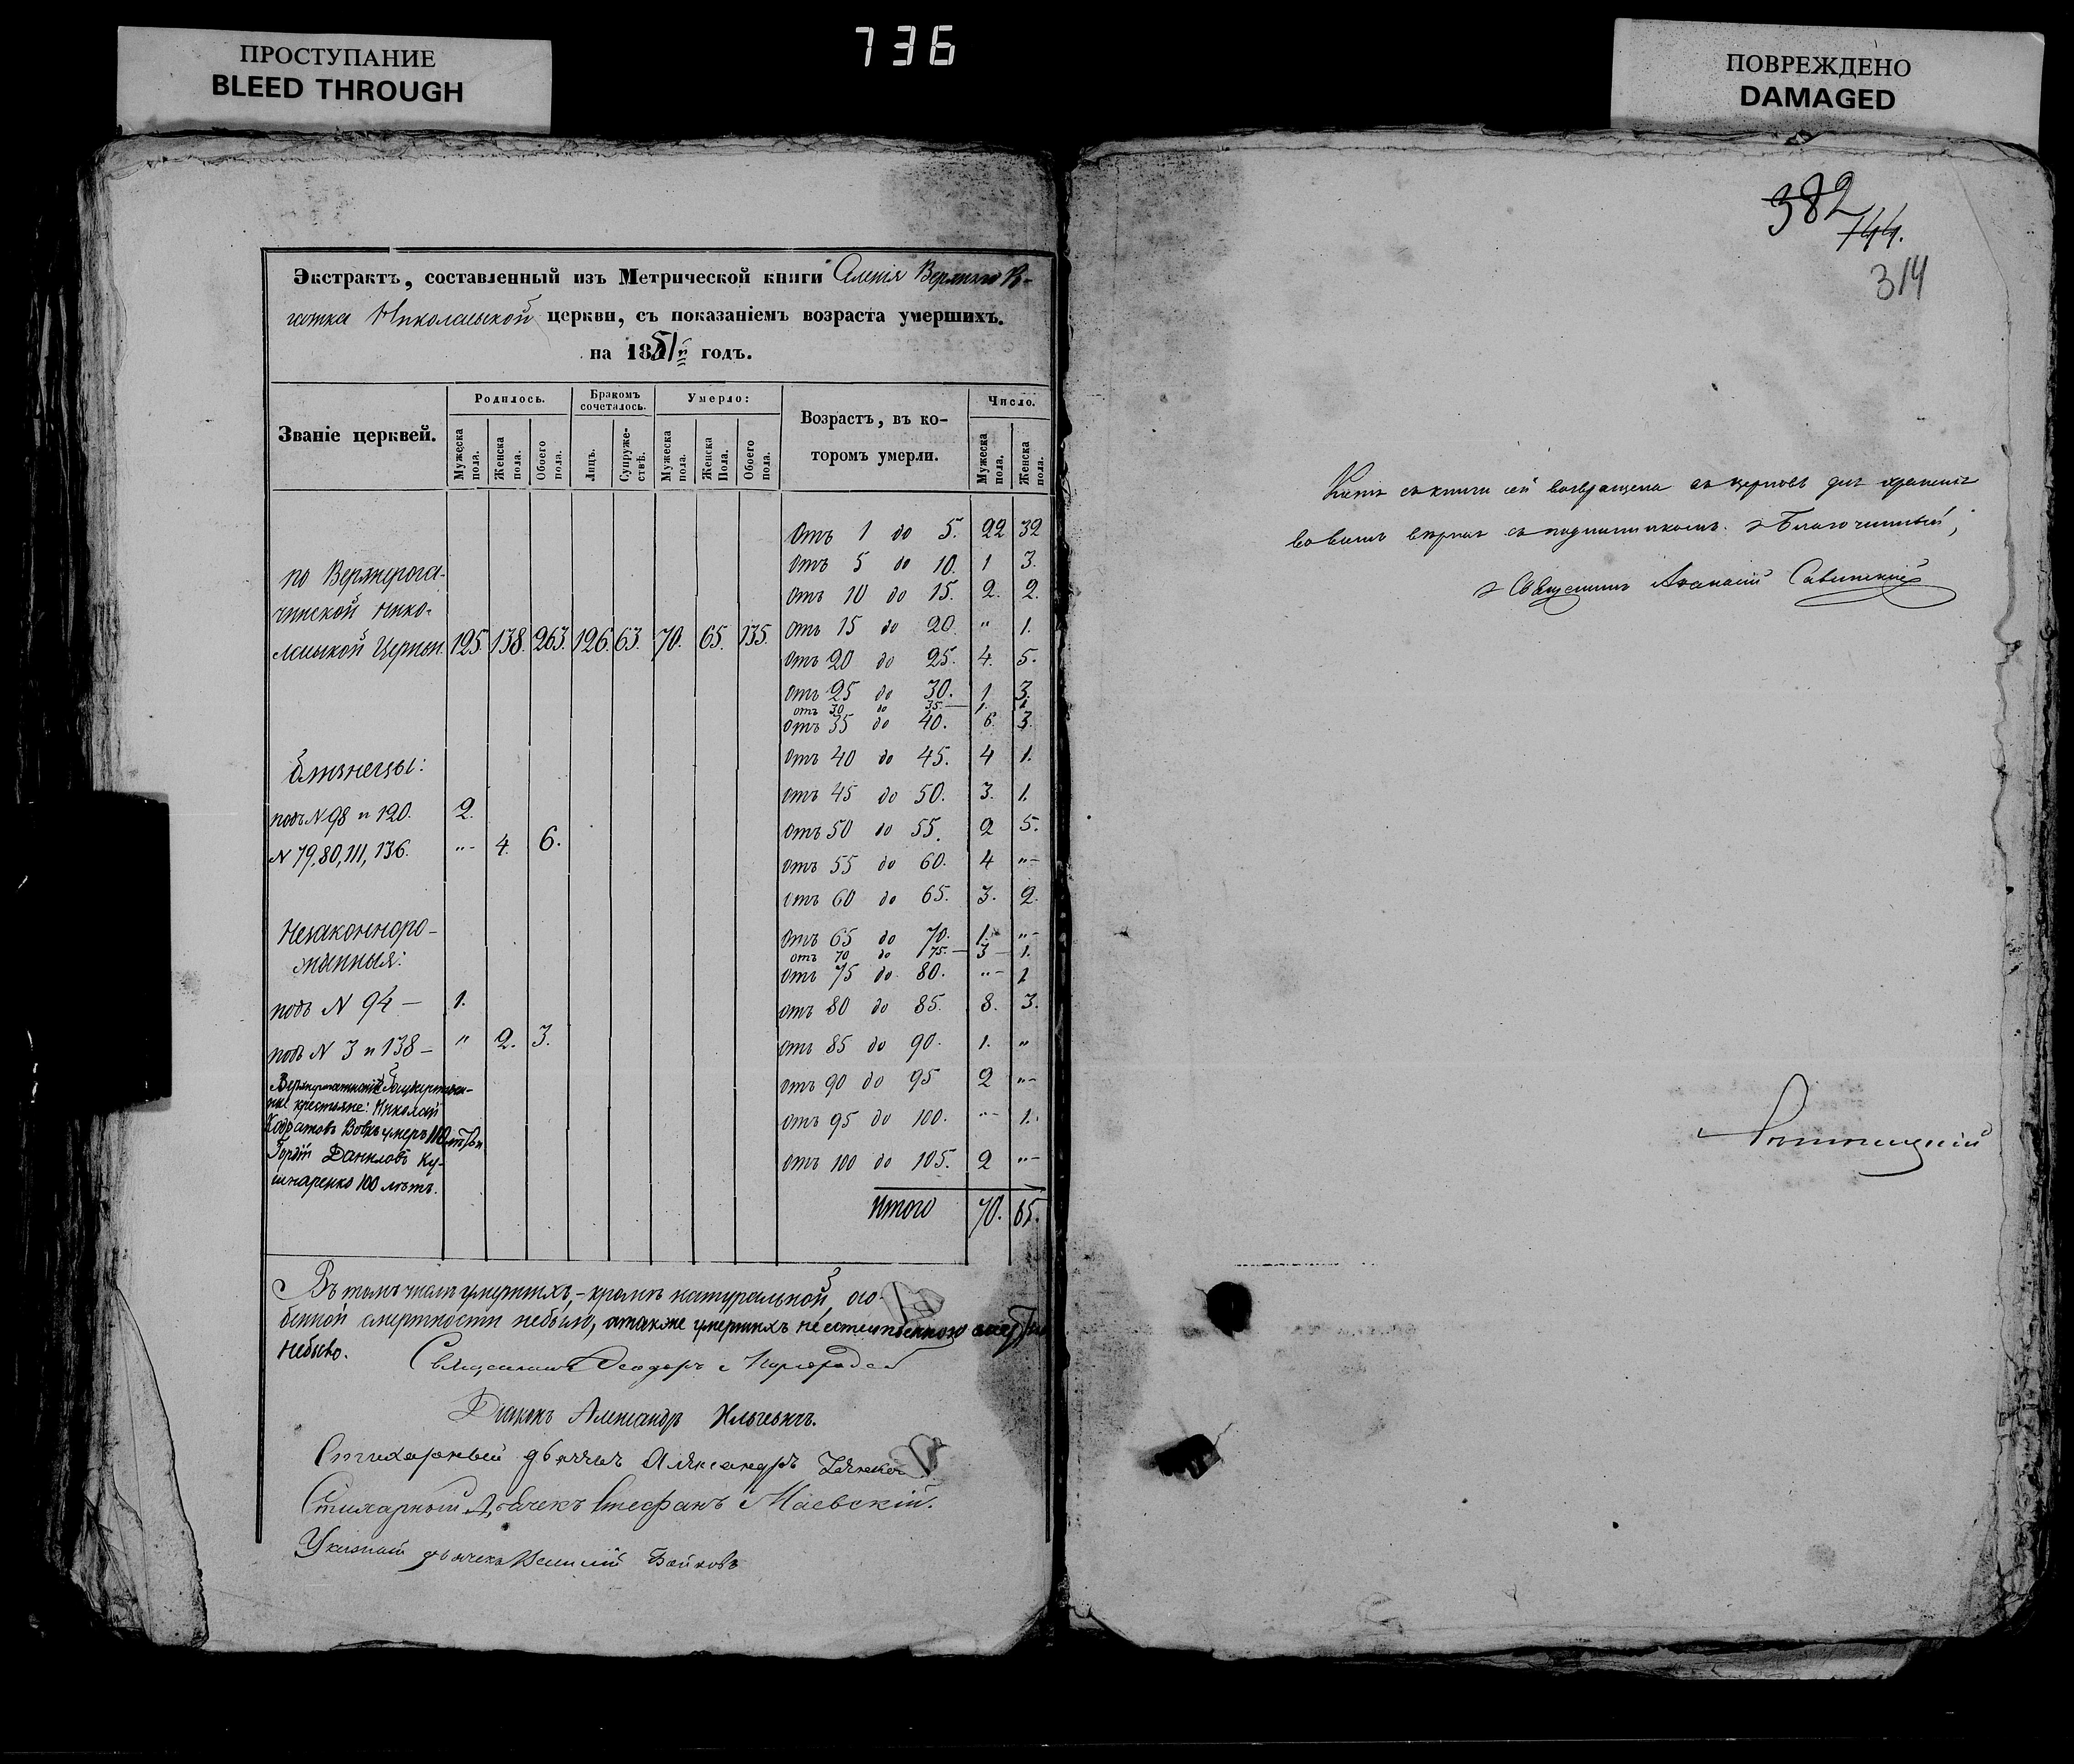 ПРОСТУПАНИЕ
BLEED THROUGH
736
ПОВРЕЖДЕНО
DAMAGED
Экстрактъ, составленный изъ Метрической книги Селенія Верхняго Ро-
гачика Николаевской церкви, съ показаніемъ возраста умершихъ.
на 1851й годъ.
Званіе церквей.
Родилось.
Мужеска пола.
Женска пола.
Обоего пола.
Бракомъ сочеталось.
Лицъ.
Супруже-ствъ.
Умерло:
Мужеска пола.
Женска Пола.
Обоего пола.
Возрастъ, въ ко-
торомъ умерли.
Число.
Мужеска пола.
Женска пола.
по Верхнерога-
чикской Нико-
лаевской Церкви. 125. 138. 263. 126. 63. 70. 65. 135.
Отъ 1 до 5. 22 32
Отъ 5 до 10. 1 3.
Отъ 10 до 15. 2. 2.
Отъ 15 до 20. " 1.
Отъ 20 до 25. 4. 5.
Отъ 25 до 30. 1 3.
отъ 30 до 35. — 1. 1.
Отъ 35 до 40. 6. 3.
Отъ 40 до 45. 4 1.
Отъ 45 до 50. 3. 1.
Отъ 50 до 55. 2 5.
Отъ 55 до 60. 4 "-
Отъ 60 до 65. 3. 2.
Отъ 65 до 70. 1. "-
отъ 70 до 75. — 3 — 1.
Отъ 75 до 80. "- 1
Отъ 80 до 85. 8. 3.
Отъ 85 до 90. 1. "
Отъ 90 до 95 2 "-
Отъ 95 до 100. "- 1.
Отъ 100 до 105. 2 "-
Итого 70. 65.
Близнецы:
подъ N 98 и 120. 2.
N 79, 80, 111, 136. "- 4. 6.
Незаконноро-
жденныя:
подъ N 94 — 1.
подъ N 3 и 138 — " 2. 3.
крестьяне: Николай
Вовкъ умеръ
Гордій Даниловъ Ку-
шнаренко 100 лѣтъ.
Въ томъ числѣ умершихъ, — кромѣ натуральной, осо-
бенной смертности небыло, а также умершихъ неестественною смертью
небыло.
Священникъ Ѳеодоръ
Діаконъ Александръ Ильчевичъ.
Стихарный дьячекъ Александръ
Стихарный Дьячекъ Стефанъ Маевскій.
Указный дьячекъ Василій Бойковъ
382
744.
314
Копія съ книги сей возвращена въ церковь для храненія
вовсемъ вѣрная съ подлинникомъ. Благочинный,
Священникъ Аѳанасій Савитскій